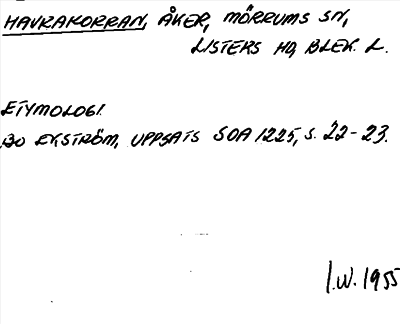 HAVRAKORRAN, ÅKER, MÖRRUMS SN,
LISTERS HD, BLEK. L.
ETYMOLOGI.
BO EKSTRÖM, UPPSATS SOA 1225, S. 22-23.
I.W. 1955